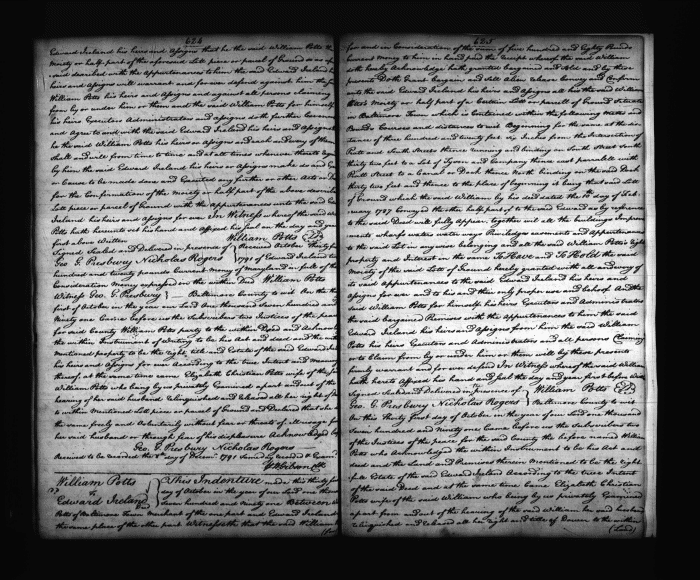 624
Edward Ireland his heirs and Assigns that he the said William Potts the
Moiety or half part of the aforesaid Lott piece or parcel of Ground as afore
said described with the Appurtenances to him the said Edward Ireland his
heirs and Assigns shall warrant and forever defend him the said
William Potts his heirs and Assigns and against all persons claiming
from by or under him or them and the said William Potts for himself
his heirs Executors Administrators and Assigns doth further Covenant
and Agree to and with the said Edward Ireland his heirs and Assigns
he the said William Potts his heirs or Assigns and each and every of them
shall and will from time to time and at all times whenever thereto
by him the said Edward Ireland his heirs or Assigns make do and
or Cause to be made done and Executed any further or other Acts or
for the Confirmation of the Moiety or half part of the above described
Lott piece or parcel of Ground with the Appurtenances unto the said
Ireland his heirs and Assigns for ever In Witness whereof the said William
Potts hath hereunto set his hand and affixed his seal on the day and year
first above Written
William Potts
Signed Sealed and Delivered in presence of Received October thirty
Geo. G. Presbury Nicholas Rogers 1791 of Edward Ireland
hundred and twenty pounds Current money of Maryland in full of the
Consideration Money expressed on the within Deed William Potts
Witness Geo. G. Presbury Baltimore County to wit On the thirty
first of October in the year one Thousand Seven hundred and
Ninety one Came before us the Subscribers two Justices of the peace
for said County William Potts party to the within Deed and Acknowledged
the within Instrument of Writing to be his Act and deed and the
mentioned property to be the right title and Estate of the said Edward Ireland
his heirs and Assigns for ever According to the true Intent and Meaning
thereof, at the same time Elizabeth Christian Potts wife of the said
William Potts who being by us privately Examined apart and out of the
hearing of her said husband relinquished and released all her right of
to within Mentioned Lott piece or parcel of Ground and Declared that she
the same freely and Voluntarily without fear or threats of ill usage
her said husband or through fear of his displeasure Acknowledged before
Geo. G. Presbury Nicholas Rogers
Received to be recorded the 8th day of 1791
William Potts
to
Edward Ireland
Deed
This Indenture made this thirty
day of October in the year of our Lord one thousand
Seven hundred and Ninety one Between William
Potts of Baltimore Town Merchant of the one part and Edward Ireland
the same place of the other part Witnesseth that the said William
625
for and in Consideration of the sum of five hundred and Eighty Pounds
Current money to him in hand paid the receipt whereof the said William
doth hereby Acknowledge hath granted bargained and Sold and by these
presents Doth Grant Bargain and Sell Alien release Convey and Confirm
unto the said Edward Ireland his heirs and Assigns all his the said William
Potts Moiety or half part of a Certain Lott or parcell of Ground Situate
in Baltimore Town which is Contained within the following metes and
Bounds Courses and distances to wit Beginning for the same at the dis
tance of three hundred and twenty feet six Inches from the Intersection of
Pratt and South Streets thence running and binding on South Street South
thirty two feet to a Lot of Tyson and Company thence east parallel with
Pratt Street to a Canal or Dock thence North binding on the said Dock
thirty two feet and thence to the place of beginning it being that said Lott
of Ground which the said William by his deed dated the
1787 Convey'd the other half part of to the said Edward as by reference
to the said Deed will fully appear Together with all the buildings Improve
ments wharfs waters water ways Priviledges easments and Appurtenances
to the said Lot in any wise belonging and all the said William Potts's right
property and Interest in the same To Have and To Hold the said
Moiety of the said Lott of Ground hereby granted with all and every of
its said Appurtenances to him the said Edward Ireland his heirs and
Assigns for ever and to his and their only proper use and behoof And the
said William Potts for himself his heirs Executors and Administrators
the said bargained Premises with the appurtenances to him the said
Edward Ireland his heirs and Assigns from him the said William
Potts his heirs Executors and Administrators and all persons Claiming
or to Claim from by or under him or them will by these presents
firmly warrant and for ever defend In Witness whereof the said William
hath hereto Affixed his hand and seal the day and year first before
Signed Sealed and Delivered in presence of William Potts
Geo. G. Presbury Nicholas Rogers Baltimore County to wit
On this Thirty first day of October in the year of our Lord one thousand
Seven hundred and Ninety one Came before us the Subscribers two
of the Justices of the peace for the said County the before named William
Potts who Acknowledged the within Instrument to be his Act and
deed and the Land and Premises therein Mentioned to be the right
title Estate of the said Edward Ireland According to the true intent
of the said Deed and at the same time Came Elizabeth Christian
Potts wife of the said William who being by us privately Examined
apart from and out of the hearing of the said William her said husband
relinquished and released all her right and title of Dower to the within
(Land)